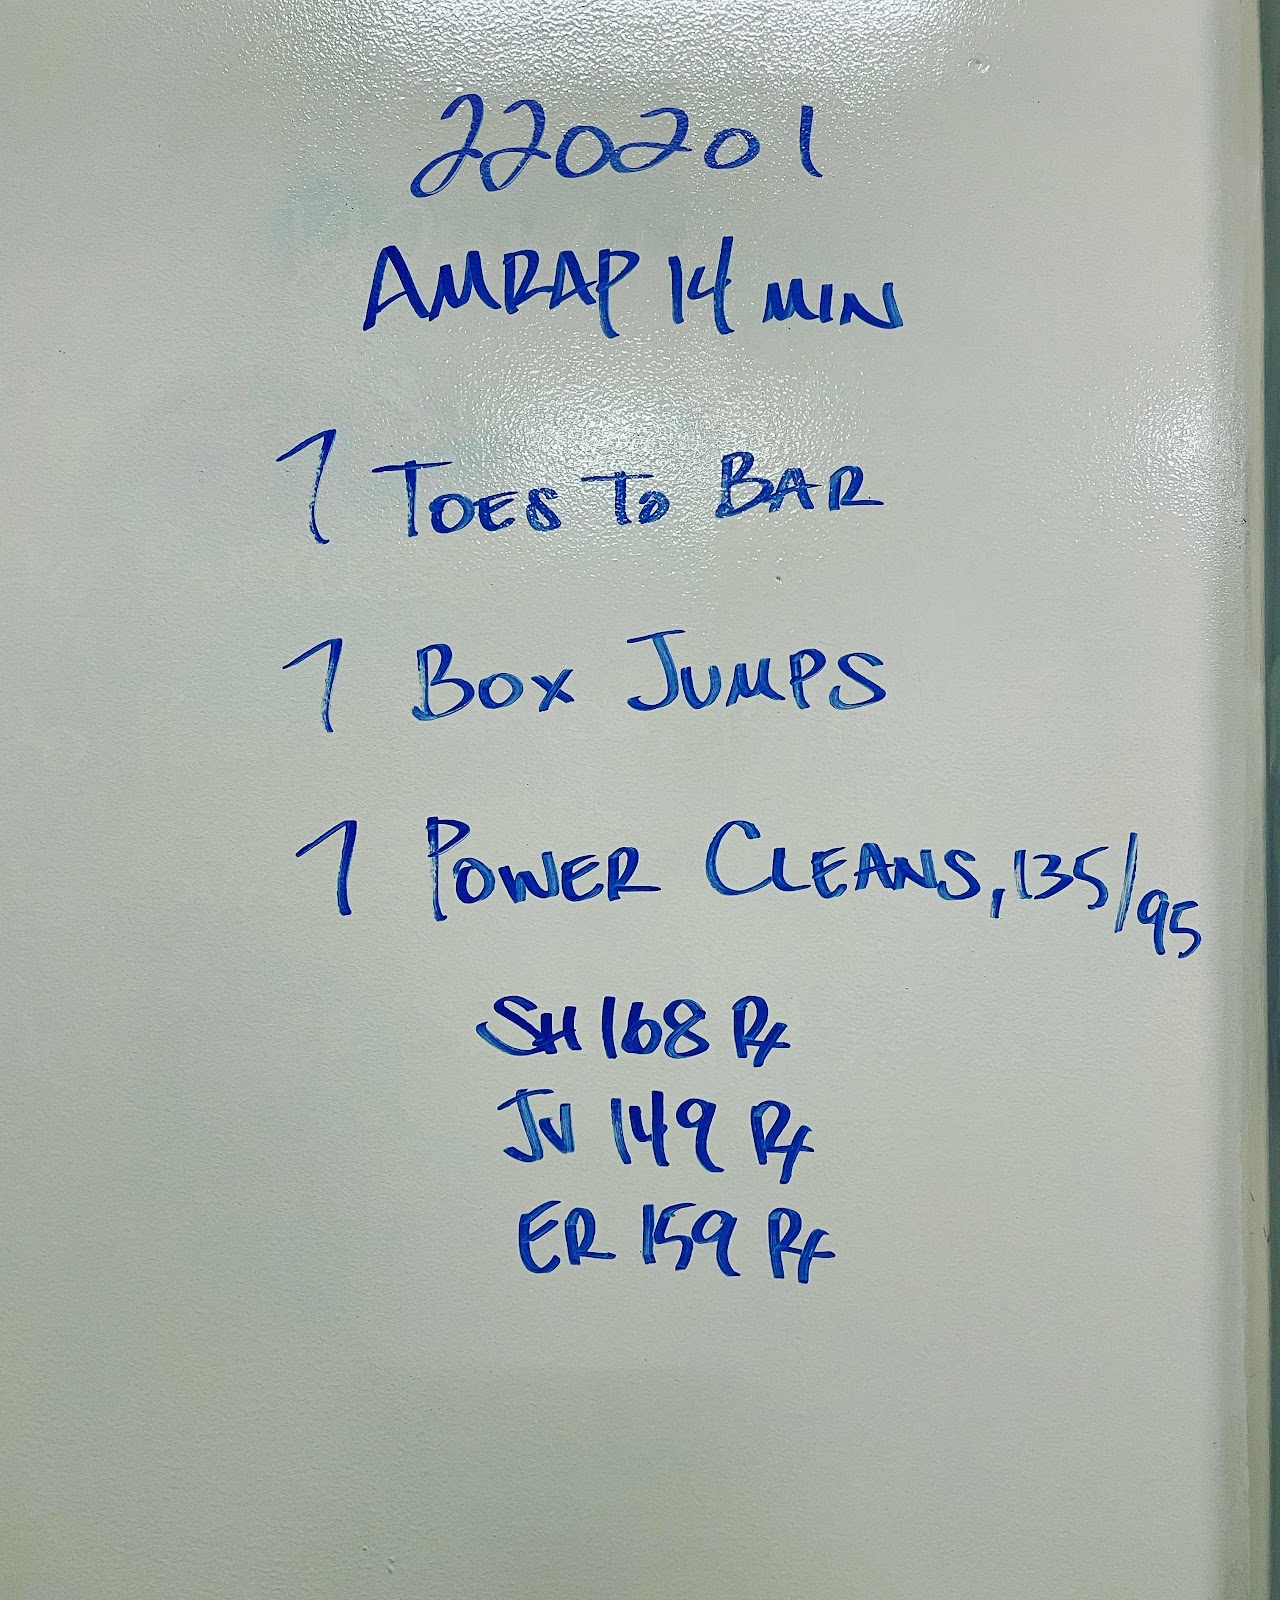 220201
AMRAP 14 MIN
7 TOES TO BAR
7 BOX JUMPS
7 POWER CLEANS, 135/95
SH 168 Rx
JV 149 Rx
ER 159 Rx